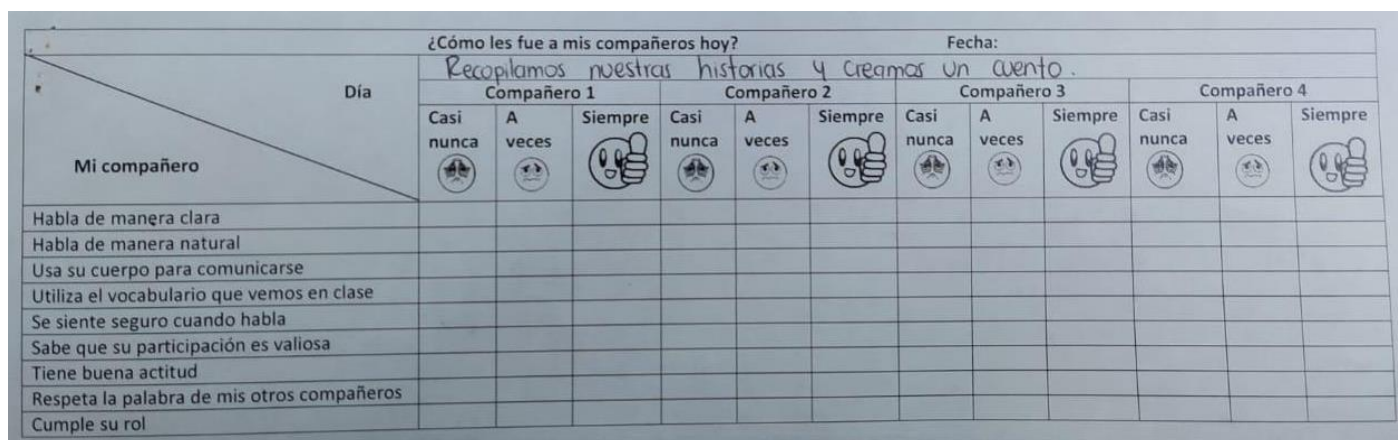 ¿Cómo les fue a mis compañeros hoy? Fecha:
Recopilamos nuestras historias y creamos un cuento.
Día
Compañero 1 Compañero 2 Compañero 3 Compañero 4
Mi compañero
Casi nunca A veces Siempre Casi nunca A veces Siempre Casi nunca A veces Siempre Casi nunca A veces Siempre
Habla de manera clara
Habla de manera natural
Usa su cuerpo para comunicarse
Utiliza el vocabulario que vemos en clase
Se siente seguro cuando habla
Sabe que su participación es valiosa
Tiene buena actitud
Respeta la palabra de mis otros compañeros
Cumple su rol